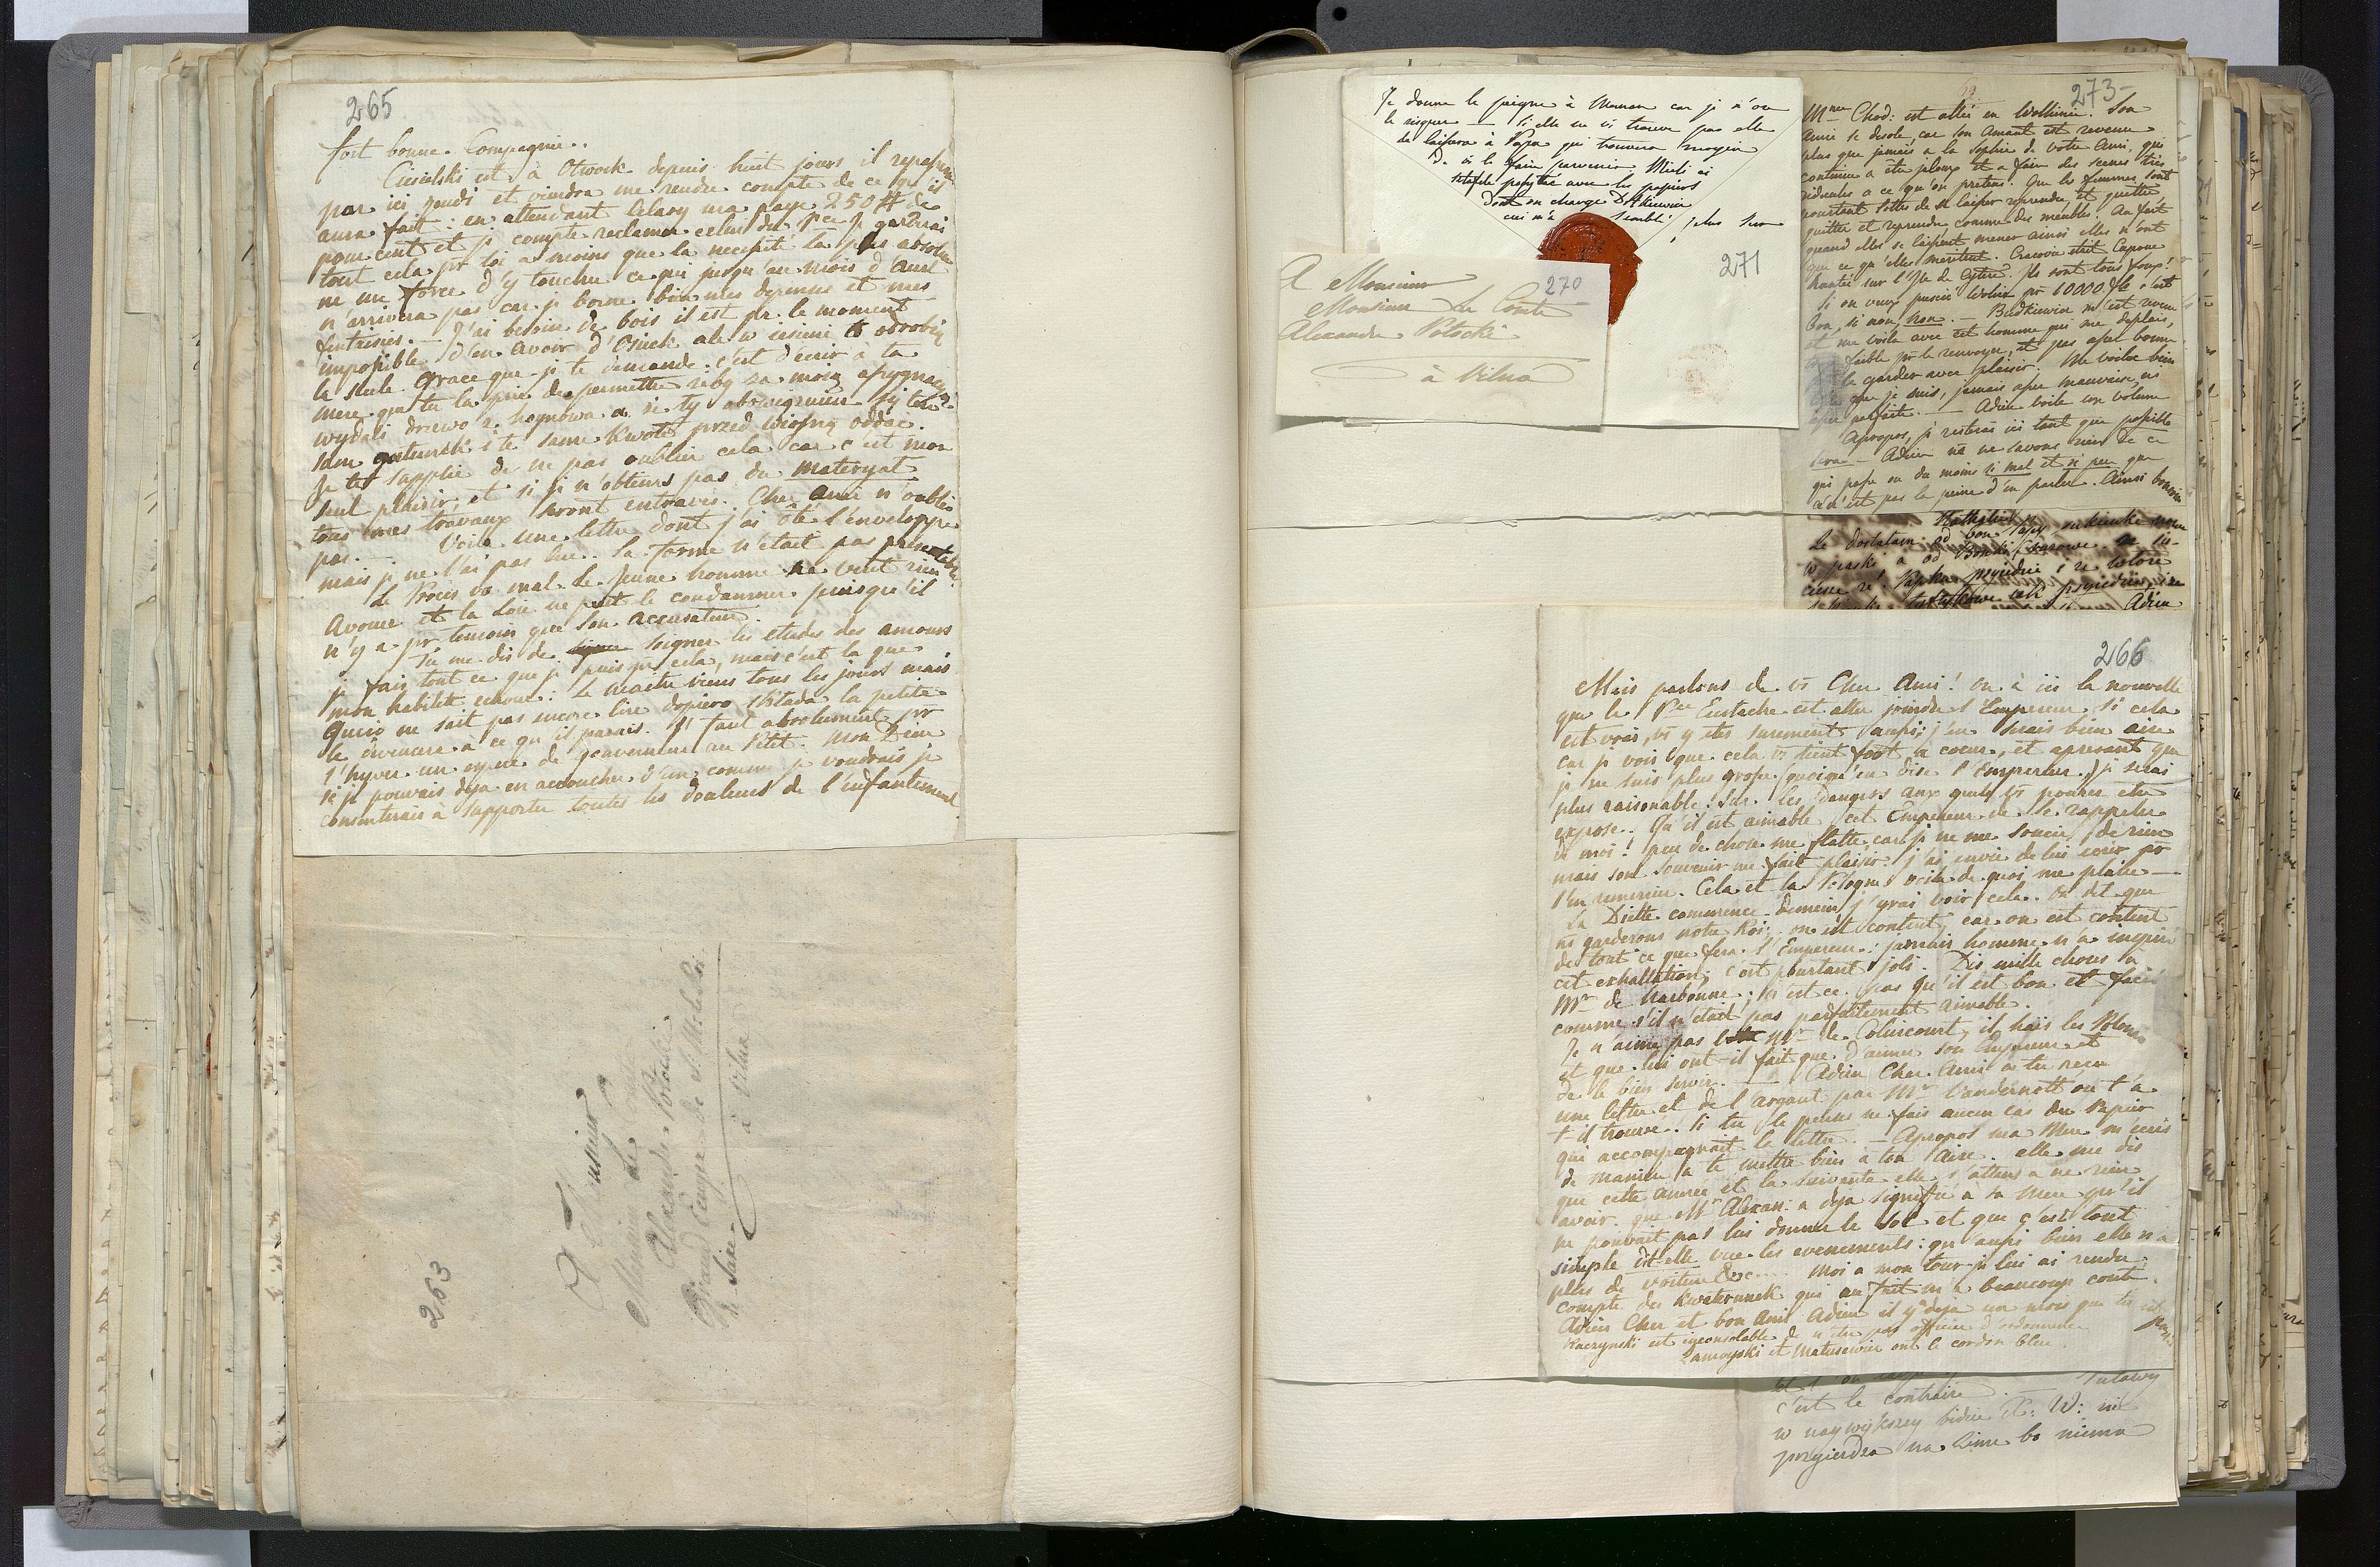 265
fort bonne Compagnie.
Ciesielski est à Otwock depuis huit jours il repasse
par ici jeudi et viendra me rendre compte de ce qu'il
aura fait: en attendant Celary ma paye 250 # de
pour cent et je compte reclamer celui du Pce je garderai
tout cela pr toi a moins que la necessité la plus absolue
ne me force d'y toucher ce qui jusqu'au mois d'Aout
n'arrivera pas car je borne bien mes depenses et mes
fantaisies. — J'ai besoin de bois il est pr. le moment
impossible d'en avoir d'Osieck ale w iesieni to odrobię
la seule Grace que je te demande: c'est d'ecrir a ta
mere que tu la prie de permettre żeby za moią assygnacyą
wydali drzewo z haynowa a że ty obowiązuiesz się ten
sam gatunek i tę samę kwotę przed wiosną oddać.
Je te supplie de ne pas oublier cela car c'est mon
seul plaisir, et si je n'obtiens pas du materyał
tous mes travaux seront entravés. Cher Ami n'oublie
pas. — Voila une lettre dont j'ai ôté l'enveloppe
mais je ne l'ai pas lue. La forme n'etait pas presentable
Le Procès va mal. Le jeune homme ne veut rien
Avouer et la Loi ne peut le condamner puisqu'il
n'y a pr temoin que son accusateur.
Tu me dis de soigner les etudes des amours
je fais tout ce que je puis pr cela, mais c'est la que
mon habileté echoue: le maitre viens tous les jours mais
Gucio ne sait pas encore lire dopiero składa la petite
le devancera à ce qu'il parais. Il faut absolument pr
l'hyver un espece de gouverneur au Petit. Mon Dieu
si je pouvais deja en accoucher d'un comme je voudrais je
consenterais à supporter toutes les douleurs de l'enfantement
263
A Monsieur
Monsieur Le Comte
Alexandre Potocki
Grand Ecuyer de S. M. le Roi
de Saxe
à Vilna
Je donne le peigne à Maman car je n'ose
le risquer — Si elle ne vs trouve pas elle
le laissera à Papa qui trouvera moyen
de vs le faire parvenir
avec les papiers
dont on charge
semblé plus sur
A Monsieur
Monsieur Le Comte
Alexandre Potocki
à Vilna
270
271
273
Mme Chod: est allée en Wollinie. Son
Amie se desole car son Amant est revenu
plus que jamais a la Sophie de votre Ami, qui
continue a être jaloux et a faire des scenes très
ridicules a ce qu'on pretend. Que les femmes sont
pourtant sottes de se laisser reprendre, et quitter
quitter et reprendre comme des meubles. Au fait
quand elles se laissent mener ainsi elles n'ont
que ce qu'elles meritent. Cracovie etait Capoue
hantée sur l'Isle de Cytere. Ils sont tous foux!
Si on veux puscić Wolin pr 10000 # c'est
bon, si non, non. — Budkiewicz m'est revenu
et me voila avec cet homme qui me deplais,
faible pr le renvoyer, et pas assez bonne
pr le garder avec plaisir. Me voila bien
que je suis, jamais assez mauvaise, ni
assez parfaite. — Adieu voila un volume
Apropos, je resterai ici tant que possible
sera — Adieu ns ne savons rien de ce
qui passe ou du moins si mal et si peu que
ce n'est pas la peine d'en parler. Ainsi bonsoir
Adieu
266
Mais parlons de vs Cher Ami! on à ici la nouvelle
que le Pce Eustache est aller joindre l'Empereur. Si cela
est vrai, vs y etes surement aussi; j'en serais bien aise
car je vois que cela vs tient fort a coeur, et apresent que
je ne suis plus grosse (quoiqu'en dise l'Empereur) je serai
plus raisonable sur les dangers aux quels vs pouvez etre
exposé. Qu'il est aimable cet Empereur de se rappeler
de moi! peu de chose me flatte car je ne me soucie de rien
mais son souvenir me fait plaisir: j'ai envie de lui ecrir pr
l'en remercier. Cela et la Pologne voila de quoi me plaire —
La Diette commence demain j'yrai voir cela. On dit que
ns garderons notre Roi; on est content, car on est content
de tout ce que fera l'Empereur: jamais homme n'a inspiré
cet exhaltation; c'est pourtant joli. Dis mille choses a
Mr de Narbonne; n'est ce pas qu'il est bon et facile
comme s'il n'était pas parfaitement aimable.
Je n'aime pas Mr de Colincourt, il hais les Polonais
et que lui ont-il fait que d'aimer son Empereur et
de le bien servir. — Adieu Cher Ami as tu reçu
une lettre et de l'argent par Mr Vandernott ou t'a
t-il trouvé. Si tu le peux ne fais aucun cas du Papier
qui accompagnait la lettre. — Apropos ma Mere m'ecris
de maniere a te mettre bien à ton Aise. elle me dis
que cette année et la suivante elle s'attens a ne rien
avoir. que Mr Alexan: a deja signifié à sa Mere qu'il
ne pouvait pas lui donner le Sol et que c'est tout
simple dit-elle vue les evenements: qu'aussi bien elle n'a
plus de voiture &c.... Moi a mon tour je lui ai rendu
compte du Kwaterunek qui au fait m'a beaucoup couté.
Adieu Cher et bon Ami Adieu il y a deja un mois que tu es
parti
Kaczynski est inconsolable de n'etre pas officier d'ordonnance
Zamoyski et Matusewic ont le cordon bleu.
c'est le contraire. — Pulawy
w naywiększey bidzie X: W: nie
przyiezdza na zime bo niema